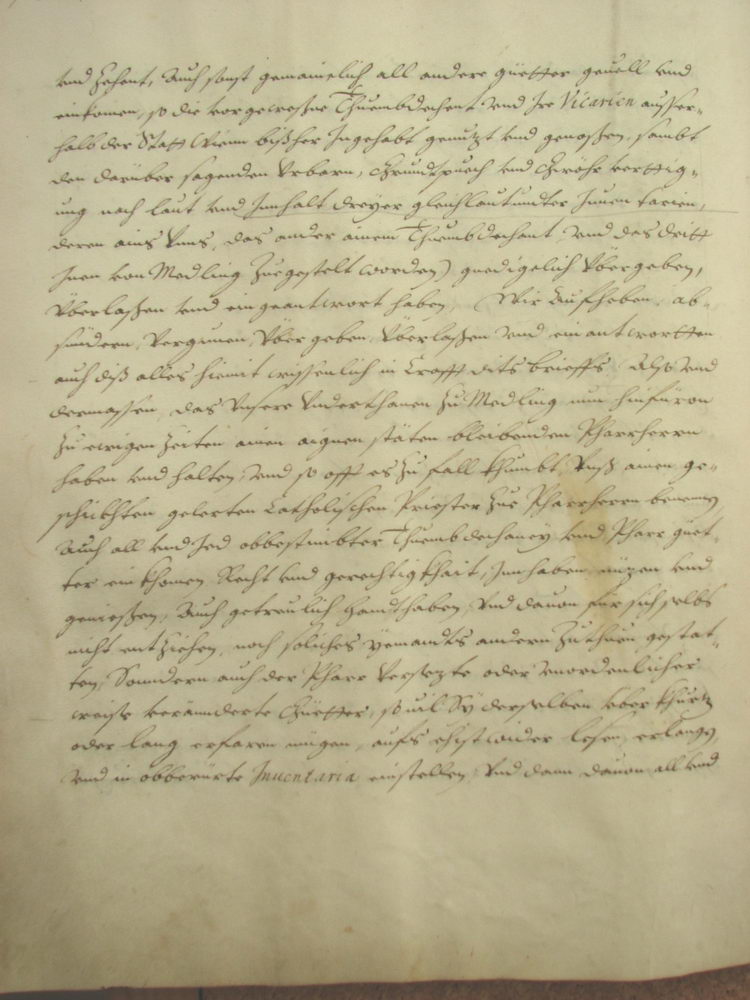 und Zehent, Auch sonst gemainelich all andere güetter geuell und
einkomen, so die vorgewesne Thuembdechant und Ire Vicarien ausser-
halb der Statt Wienn bißher Ingehabt genutzt und genossen, sambt
den darüber sagenden Urbarn, Grundtpuech und Gewöhr verttig-
ung nach laut und Innhalt dreyer gleichlautundter Inuentarien,
deren ains Unns, das ander ainem Thuembdechant, und das dritt
Inen von Medling Zuegestelt worden) gnedigelich Übergeben,
Überlassen und eingeantwort haben, Wir Aufheben, ab-
sündern, Vergunnen, Übergeben, Überlassen und einantwortten
auch diß alles hiemit wissenlich in Crafft dits brieffs Also und
dermassen, das Unsere Underthanen Zu Medling nun hinfüron
Zu ewigen Zeiten ainen aignen stäten bleibenden Pharrherrn
haben und halten, und so offt es Zu fall khumbt, Uns ainen ge-
schickhten gelerten Catholischen Priester Zue Pharrherrn benennen
Auch all und Jed obbestimbter Thuembdechaney und Pharr güet-
ter einkhomen Recht und gerechtigkhait, Innhaben nüzen und
geniessen, Auch getreulich handthaben, Und dauon für sich selbs
nicht entziehen, noch soliches yemandts andern Zuthuen gestat-
ten, Sonndern auch der Pharr Versezte oder unordenlicher
weise veränderte Güetter, souil Sy derselben uber khurtz
oder lang erfaren mügen, aufs ehist wider lesen, erlangen
und in obberürte Inuentaria einstellen, Und dann dauon all und